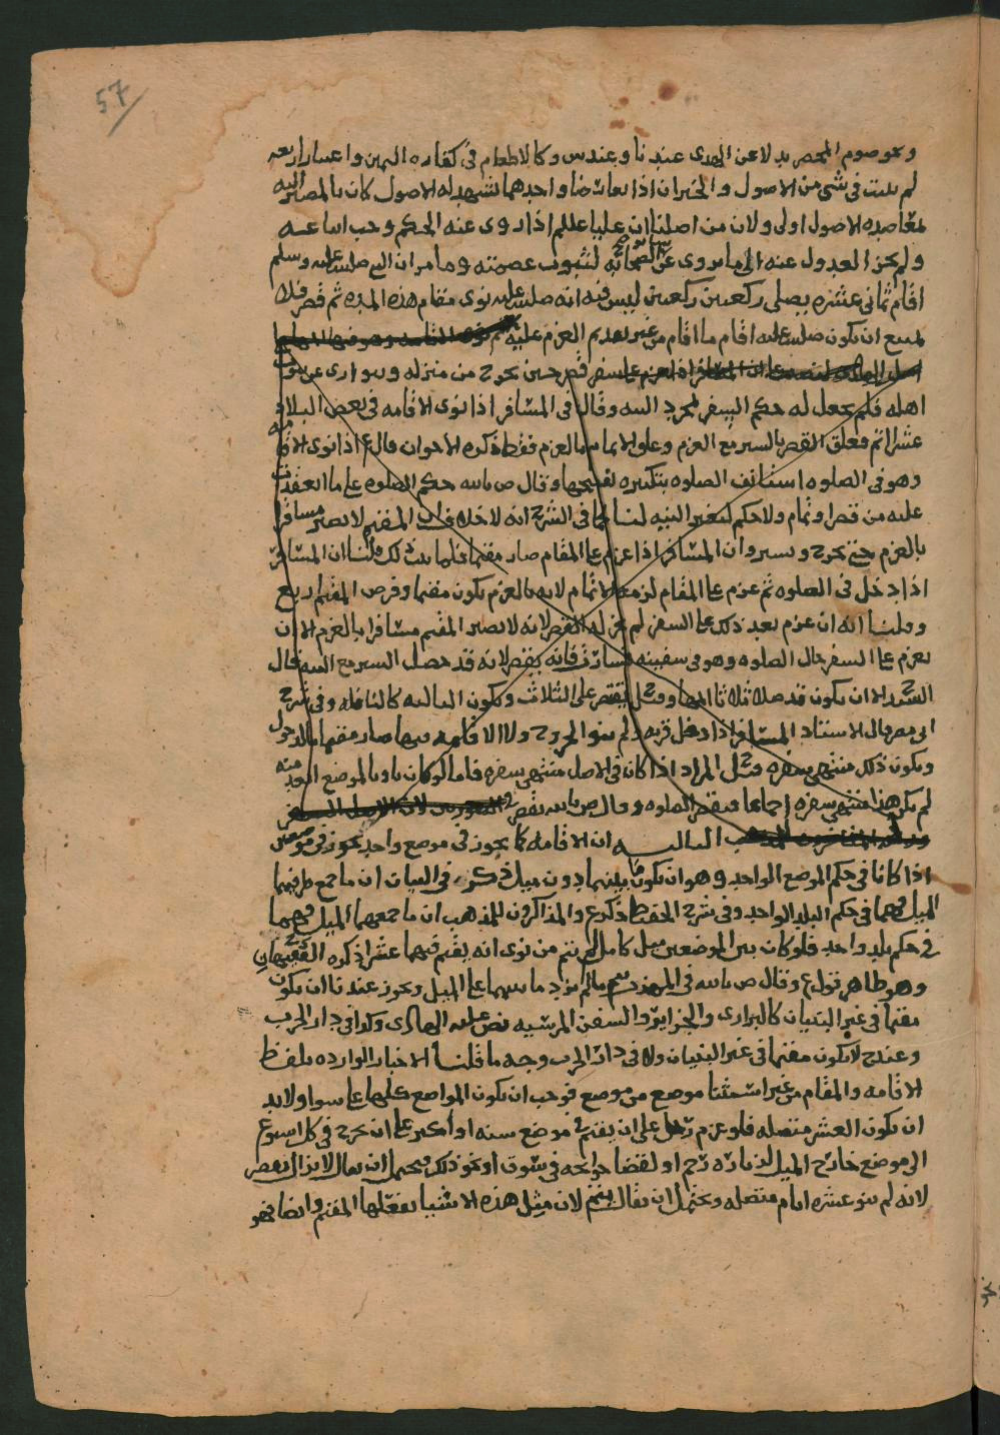 57
ونحو صوم المحصر بدلا عن الهدى عندنا وعند س وكالاطعام في كفاره اليمين واعتبار اربعه
لم يثبت في شي من الاصول والخبران اذا تعارضا واحدهما تشهد له الاصول كان بالمصير اليه
لمعاضده الاصول اولى ولان من اصلنا ان عليا علم اذا روى عنه الحكم وجب اتباعه
ولم يجز العدول عنه الى ما يروى عن سائر الصحابه لثبوت عصمته وما مر ان النبي صلى الله عليه وسلم
اقام ثماني عشره يصلي ركعتين ركعتين ليس فيه انه صلى الله عليه نوى مقام هذه المده ثم قصر فلا
يمنع ان يكون صلى الله عليه اقام ما اقام من غير تقديم العزم عليه
اذا عزم على السفر قصر حين يخرج من منزله ويتوارى عن بيوت
اهله فلم يجعل له حكم السفر لمجرد النيه وقال في المسافر اذا نوى الاقامه في بعض البلاد
عشرا اتم فعلق القصر بالسير مع العزم وعلق الاتمام بالعزم فقط ذكره الاخوان قال ع اذا نوى الاقامه
وهو في الصلوه استانف الصلوه بتكبيره لفتتحها وقال ص بالله حكم الصلوه على ما انعقدت
عليه من قصر او تمام ولا حكم لتغير النيه لنا ما في الشرح انه لا خلاف ان المقيم لا يصير مسافرا
بالعزم حتى يخرج ويسير وان المسافر اذا عزم على المقام صار مقيما فلما ثبت ذلك قلنا ان المسافر
اذا دخل في الصلوه ثم عزم على المقام لزمه الاتمام لانه بالعزم يكون مقيما وفرض المقيم اربع
وقلنا انه ان عزم بعد ذلك على السفر لم يجز له القصر لانه لا يصير المقيم مسافرا بالعزم الا ان
يعزم على السفر حال الصلوه وهو في سفينه فسارت فانه يقصر لانه قد حصل السير مع النيه قال
السيد ح الا ان يكون قد صلا ثلاثا اتمها وقيل يقتصر على الثلاث ويكون الثالثه كالنافله وفي شرح
ابي مضر قال الاستاذ المسافر اذا دخل قريه ولم ينو الخروج ولا الاقامه فيها صار مقيما بالدخول
ويكون ذلك منتهى سفره وقيل المراد اذا كان في الاصل منتهى سفره فاما لو كان ناويا لموضع ابعد منه
لم يكن هذا منتهى سفره اجماعا فيقصر الصلوه وقال ص بالله يقصر
الثالثه ان الاقامه كما يجوز في موضع واحد يجوز في موضعين
اذا كانا في حكم الموضع الواحد وهو ان يكون ما بينهما دون ميل ذكره في البيان ان ما جمع طرفيهما
الميل فهما في حكم البلد الواحد وفي شرح الحفيظ ذكره ع والمذاكرون للمذهب ان ما جمعهما الميل فهما
في حكم بلد واحد فلو كان بين الموضعين ميل كامل لم يتم من نوى انه يقيم فيهما عشرا ذكره الفقيهان
وهو ظاهر قول ع وقال ص بالله في المهذب يتم ما لم يزد ما بينهما على الميل ويجوز عندنا ان يكون
مقيما في غير البنيان كالبراري والجزائر والسفن المرسيه نص عليه الهادي وكذا في دار الحرب
وعند ح لا يكون مقيما في غير البنيان ولا في دار الحرب وجه ما قلنا الاخبار الوارده بلفظ
الاقامه والمقام من غير استثنا موضع من موضع فوجب ان يكون المواضع كلها على سوا ولا بد
ان يكون العشر متصله فلو عزم رجل على ان يقيم في موضع سنه او اكثر على ان يخرج في كل اسبوع
الى موضع خارج الميل لزياره رحم او لقضا حوائجه في سوق او نحو ذلك فيحتمل ان يقال لا يزال يقصر
لانه لم ينو عشره ايام متصله ويحتمل ان يقال يتم لان مثل هذه الاشيا يفعلها المقيم وايضا فهو